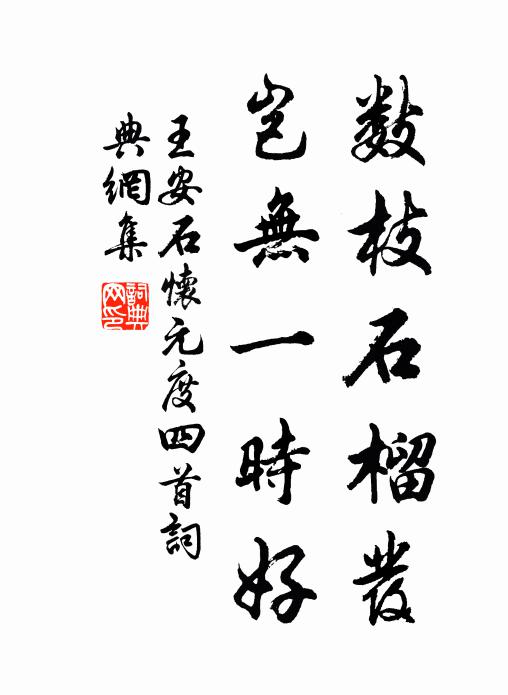 數枝石榴發
豈無一時好
王安石懷元度四首詞
典網集
詞典網印